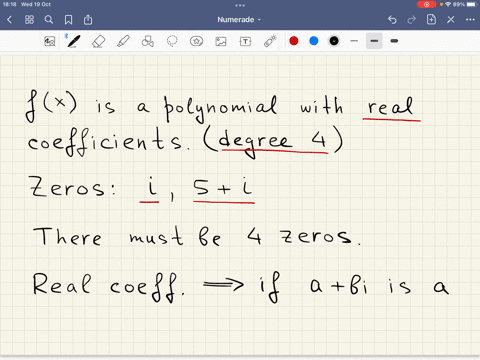 18:18 Wed 19 Oct
89%
Numerade
f(x) is a polynomial with real
coefficients. (degree 4)
Zeros: i, 5+i
There must be 4 zeros.
Real coeff. ⟹ if a+bi is a